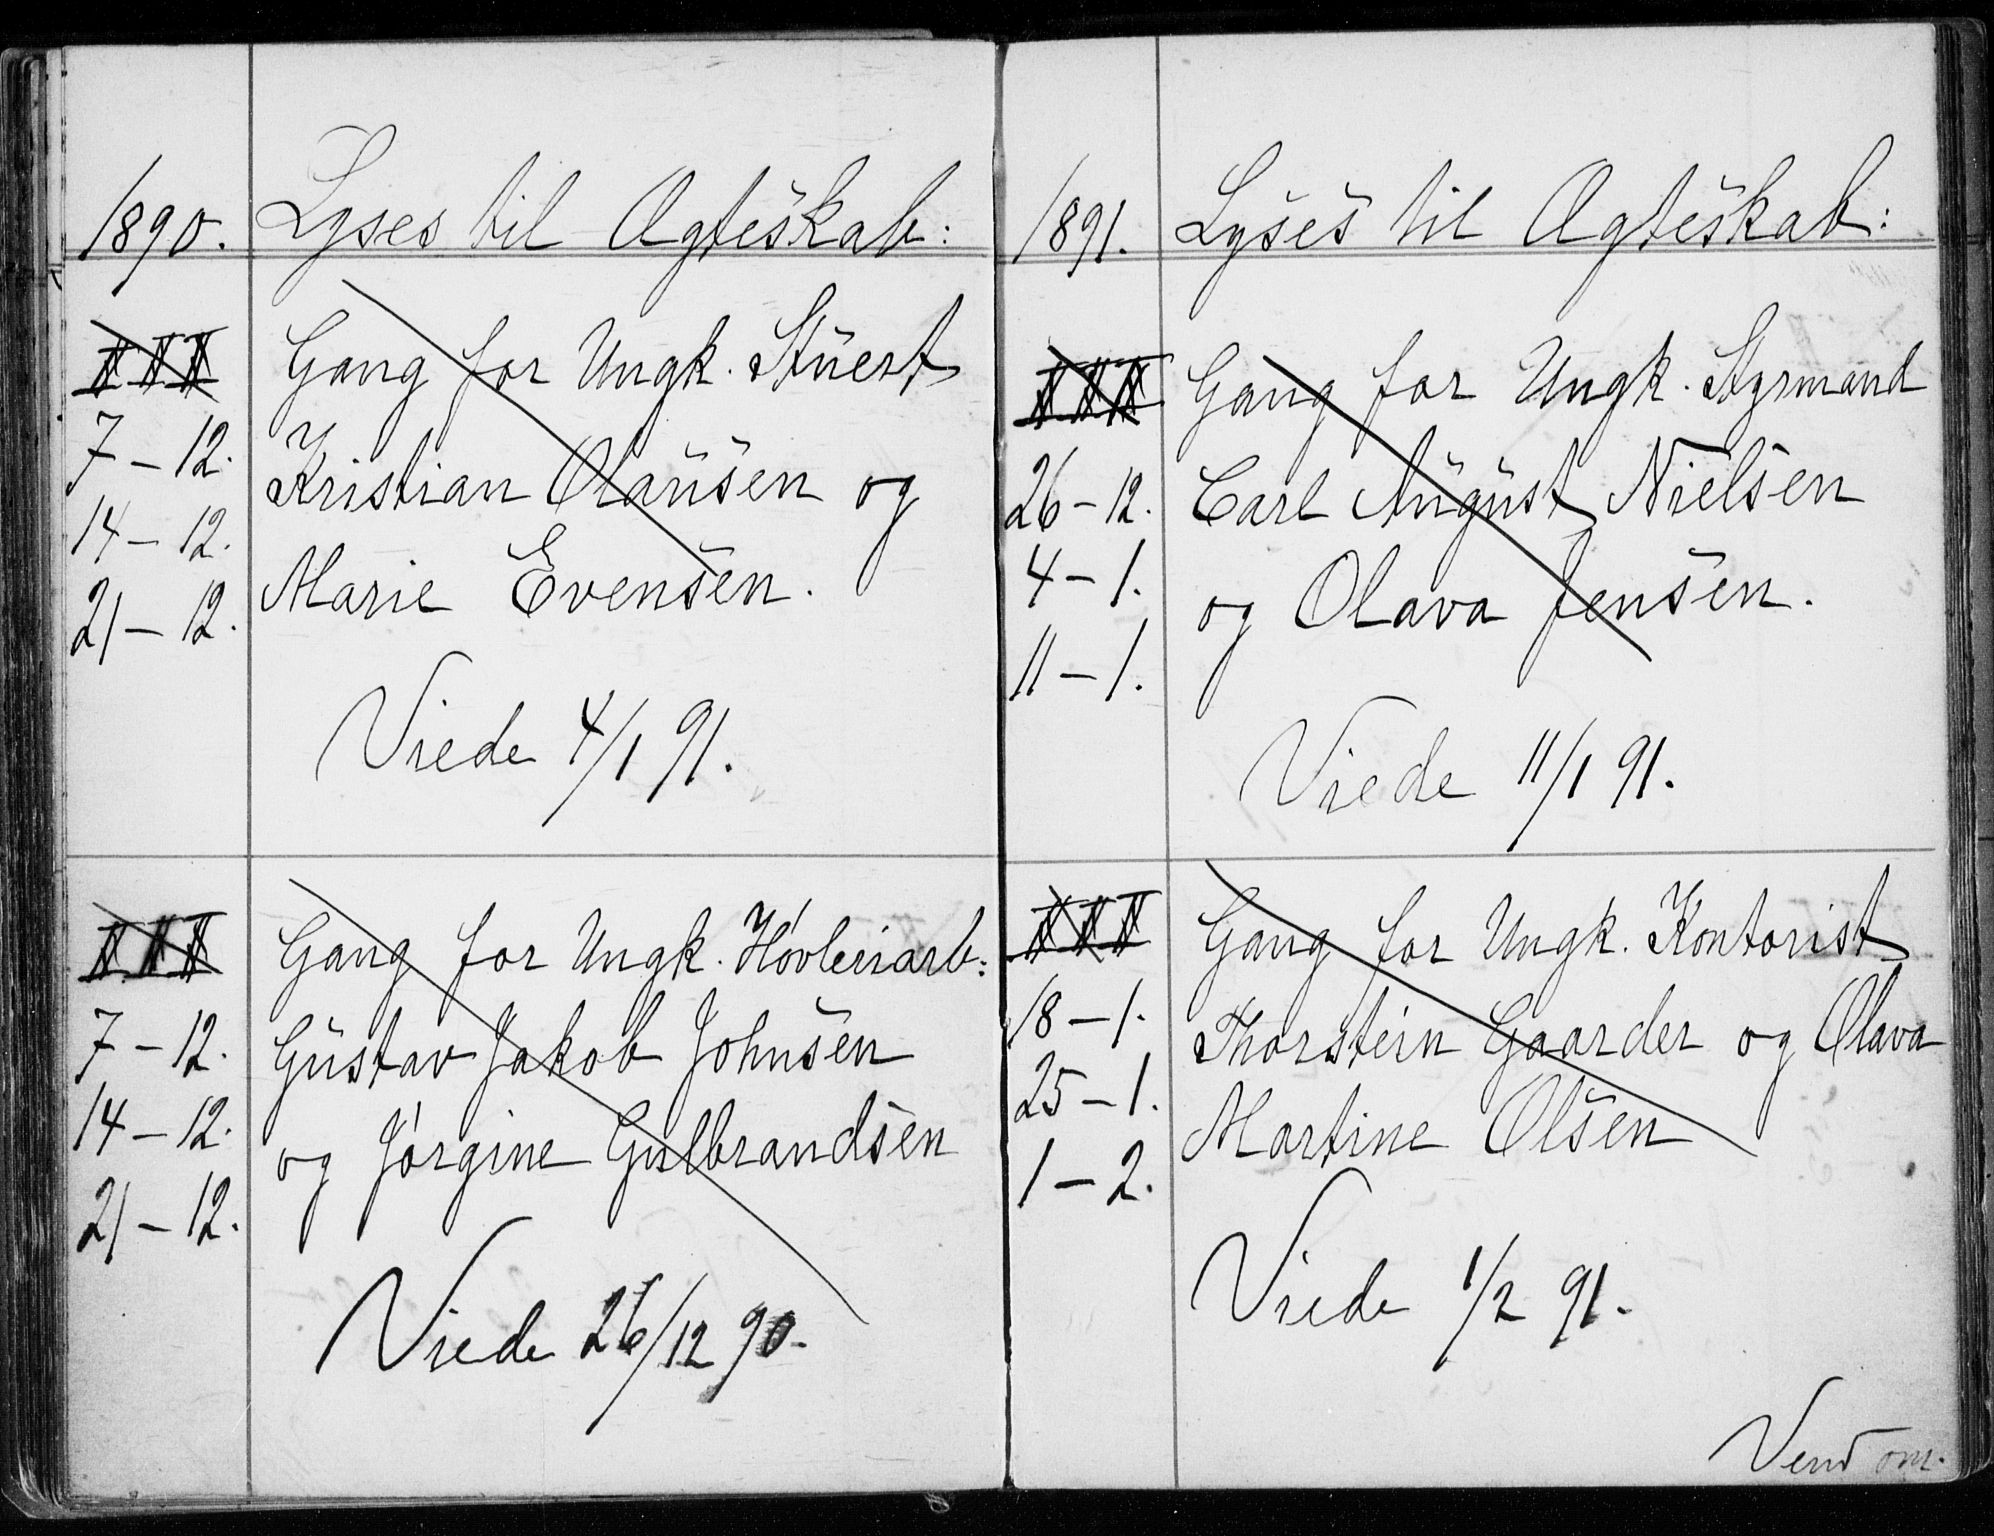 1890. Lyses til Ægteskab:
I II III Gang for Ungk. Stuert
7 – 12. Kristian Clausen og
14 – 12. Marie Evensen.
21 – 12.
Viede 4/1 91.
I II III Gang for Ungk. Høvleriarb:
7 – 12. Gustav Jakob Johnsen
14 – 12. og Jørgine Gulbrandsen
21 – 12.
Viede 26/12 90.
1891. Lyses til Ægteskab:
I II III Gang for Ungk. Styrmand
26 – 12. Carl August Nielsen
4 – 1. og Olava Jensen.
11 – 1.
Viede 11/1 91.
I II III Gang for Ungk. Kontorist
18 – 1. Thorstein Gaarder og Olava
25 – 1. Martine Olsen
1 – 2.
Viede 1/2 91.
Vend om.